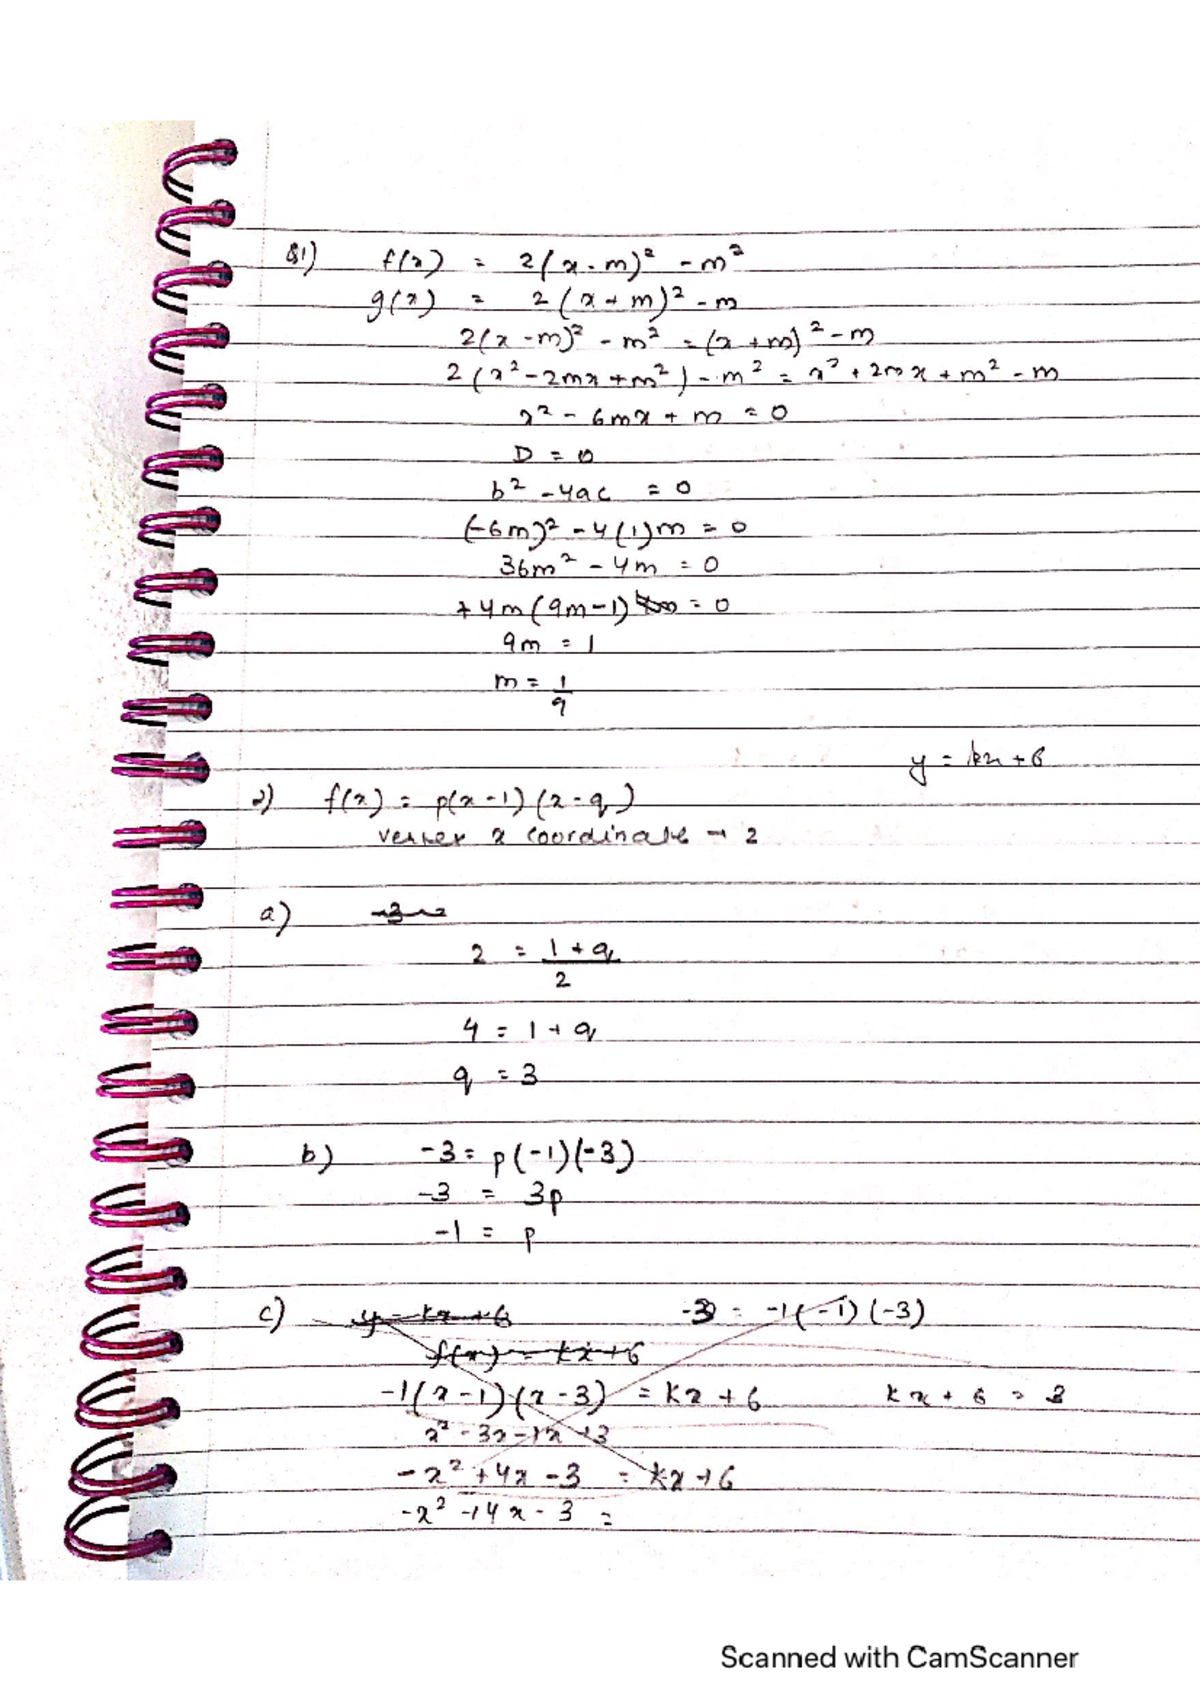 Q1) f(x) = 2(x-m)² - m²
g(x) = 2(x+m)² - m
2(x-m)² - m² = (x+m)² - m
2(x² - 2mx + m²) - m² = x² + 2mx + m² - m
x² - 6mx + m = 0
D = 0
b² - 4ac = 0
(-6m)² - 4(1)m = 0
36m² - 4m = 0
+4m(9m-1) = 0
9m = 1
m = 1/9
y = kx + 6
2) f(x) = p(x-1)(x-q)
vertex x coordinate → 2
a)
2 = (1+q)/2
4 = 1 + q
q = 3
b) -3 = p(-1)(-3)
-3 = 3p
-1 = p
c) y = kx + 6 -3 = -1(-1)(-3)
f(x) = kx + 6
-1(x-1)(x-3) = kx + 6 kx + 6 = 3
x² - 3x - 1x + 3
-x² + 4x - 3 = kx + 6
-x² + 4x - 3 =
Scanned with CamScanner